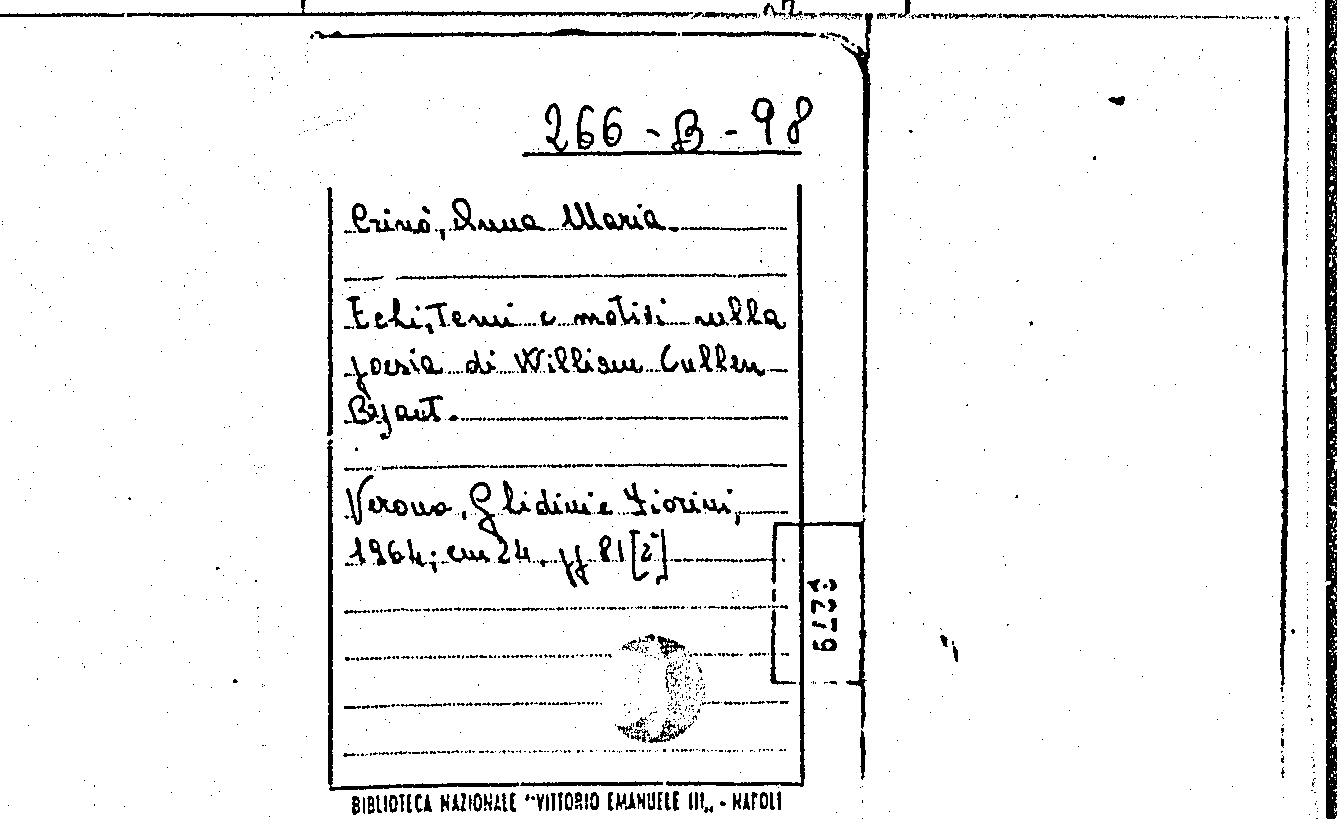 266-B-98
Crinò, Anna Maria.
Echi, Temi e motivi nella
poesia di William Cullen
Bryant.
Verona, Ghidini e Fiorini,
1964; cm 24, pp 81 [2]
BIBLIOTECA NAZIONALE "VITTORIO EMANUELE III„ - NAPOLI